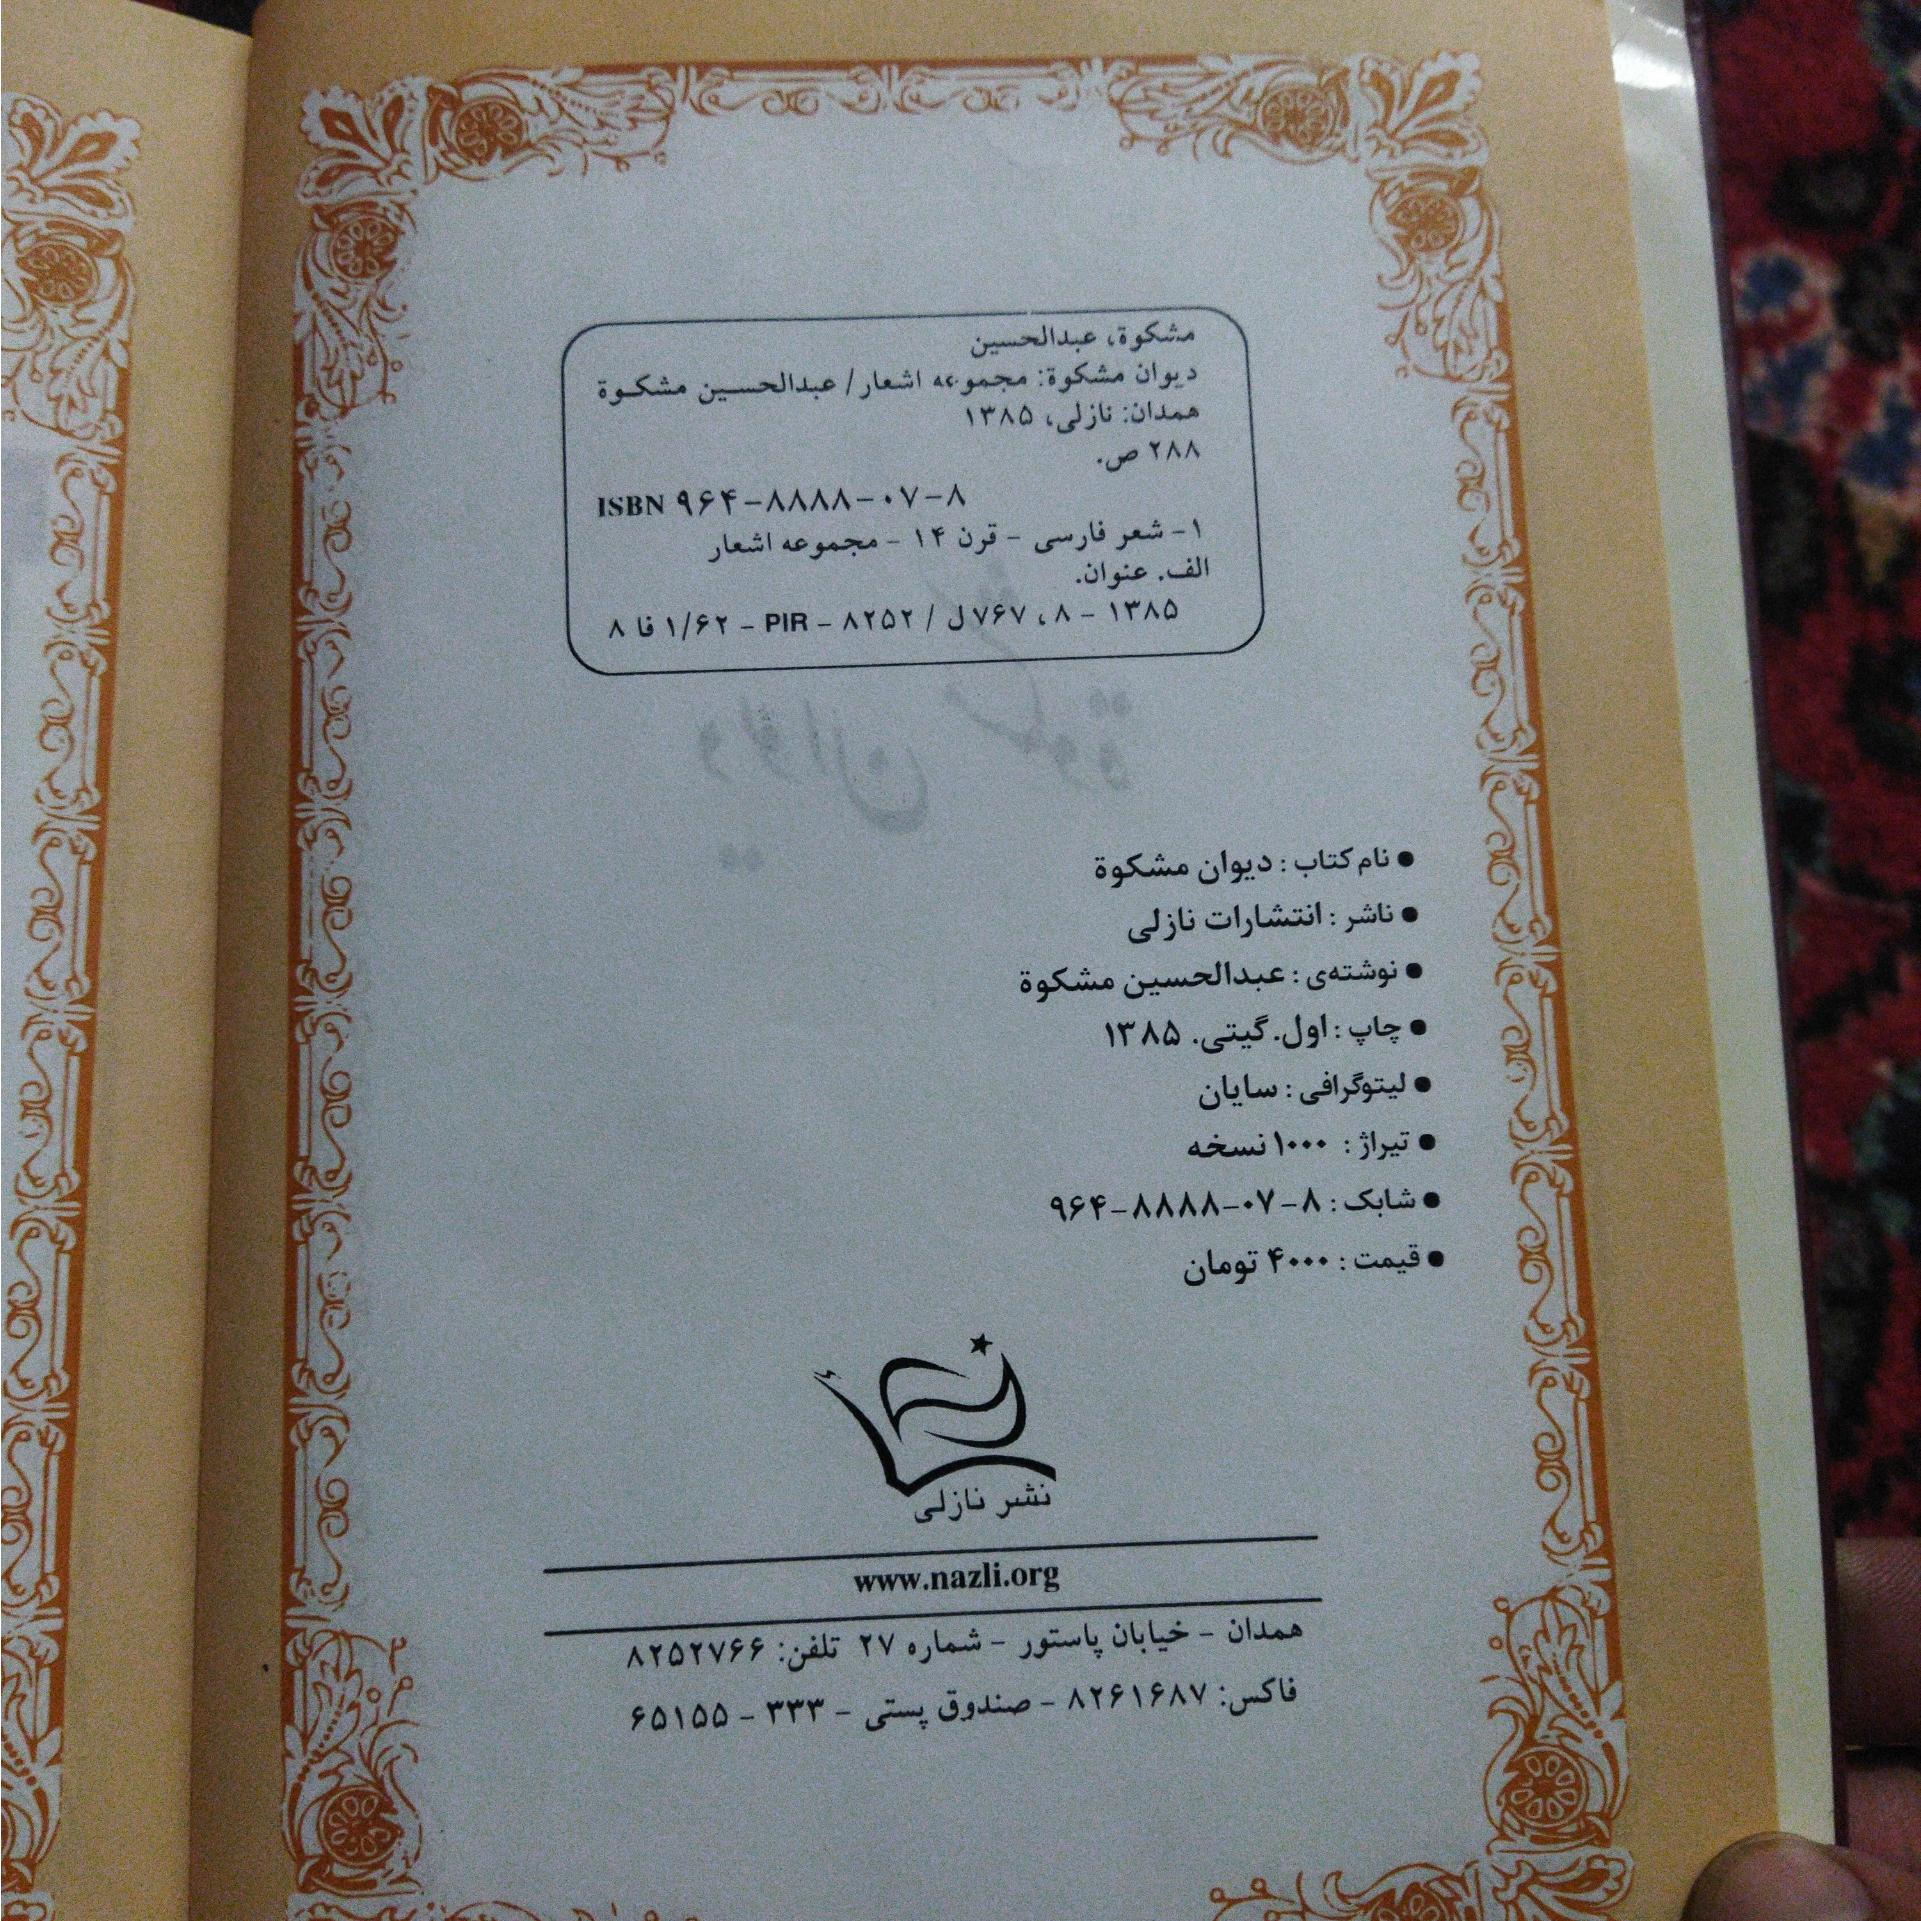 مشکوة، عبدالحسین
دیوان مشکوة: مجموعه اشعار/ عبدالحسین مشکوة
همدان: نازلی، ۱۳۸۵
۲۸۸ ص.
ISBN ۹۶۴-۸۸۸۸-۰۷-۸
۱- شعر فارسی - قرن ۱۴ - مجموعه اشعار
الف. عنوان.
۱۳۸۵ - ۸، ۷۶۷ ل / ۸۲۵۲ - PIR - ۱/۶۲ فا ۸
● نام کتاب : دیوان مشکوة
● ناشر : انتشارات نازلی
● نوشته‌ی : عبدالحسین مشکوة
● چاپ : اول. گیتی. ۱۳۸۵
● لیتوگرافی : سایان
● تیراژ : ۱۰۰۰ نسخه
● شابک : ۸-۰۷-۸۸۸۸-۹۶۴
● قیمت : ۴۰۰۰ تومان
نشر نازلی
www.nazli.org
همدان - خیابان پاستور - شماره ۲۷ تلفن: ۸۲۵۲۷۶۶
فاکس: ۸۲۶۱۶۸۷ - صندوق پستی - ۳۳۳ - ۶۵۱۵۵